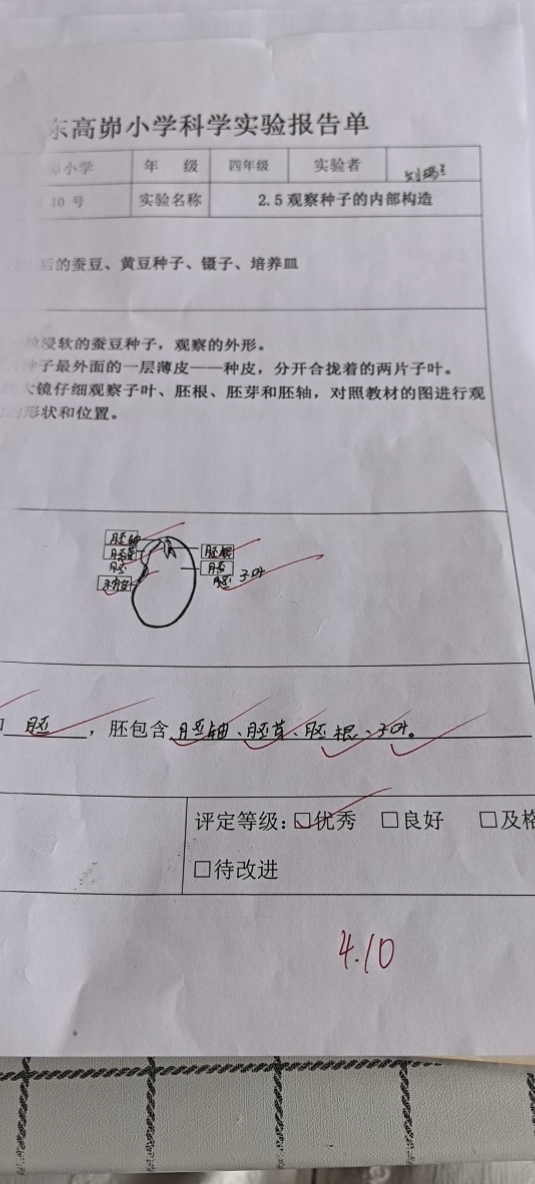 东高峁小学科学实验报告单
峁小学 年 级 四年级 实验者
10 号 实验名称 2.5 观察种子的内部构造
后的蚕豆、黄豆种子、镊子、培养皿
浸软的蚕豆种子，观察的外形。
种子最外面的一层薄皮——种皮，分开合拢着的两片子叶。
大镜仔细观察子叶、胚根、胚芽和胚轴，对照教材的图进行观
的形状和位置。
胚轴 胚根
胚
胚 子叶
胚 ，胚包含 胚轴、胚芽、胚根、子叶。
评定等级：□优秀 □良好 □及格
□待改进
4.10